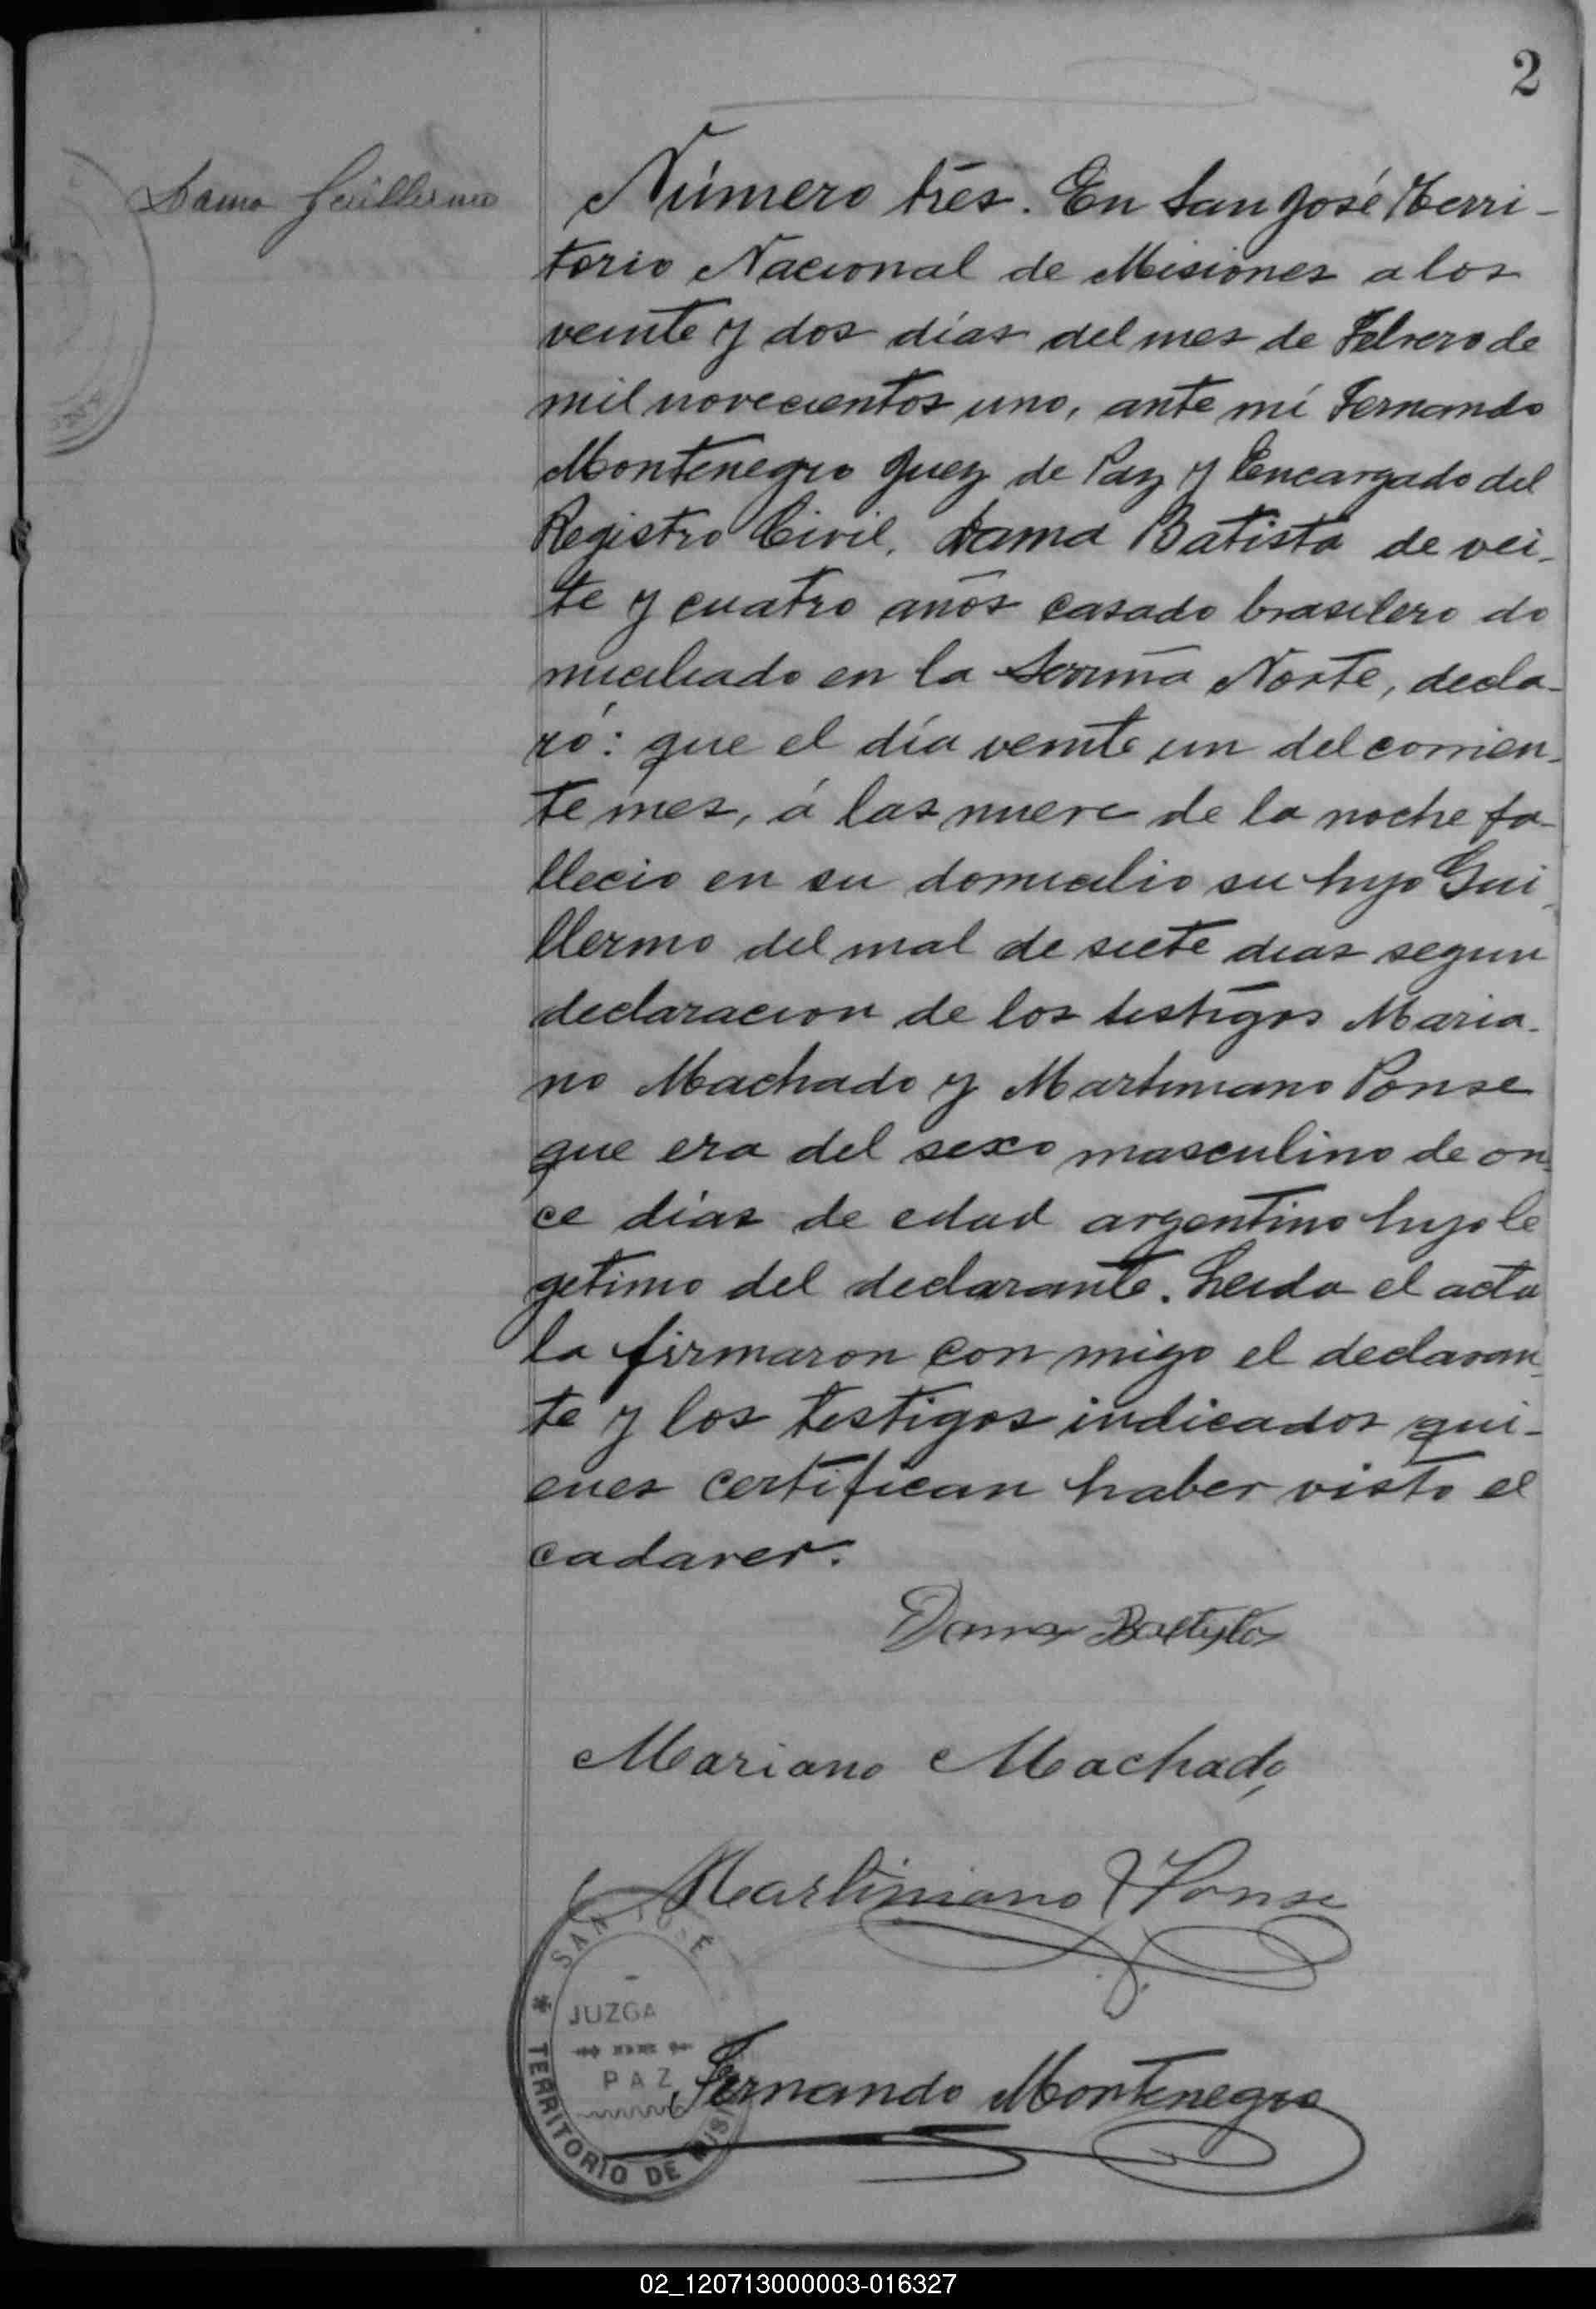 2
Dama Guillermo
Número tres. En San José Terri-
torio Nacional de Misiones a los
veinte y dos días del mes de Febrero de
mil novecientos uno, ante mí Fernando
Montenegro Juez de Paz y Encargado del
Registro Civil, Dama Batista de vei-
te y cuatro años casado brasilero do
miciliado en la Norte, decla-
ró: que el día veinte un del corrien-
te mes, á las nueve de la noche fa-
llecio en su domicilio su hijo Gui-
llermo del mal de siete dias segun
declaracion de los testigos Maria-
no Machado y Martiniano Ponse
que era del sexo masculino de on-
ce días de edad argentino hijo le
getimo del declarante. Leida el acta
la firmaron con migo el declaran-
te y los testigos indicados qui-
enes certifican haber visto el
cadaver.
Dama
Mariano Machado
Martiniano Ponse
SAN JOSÉ
JUZGA
PAZ
TERRITORIO DE MISI
Fernando Montenegro
02_120713000003-016327